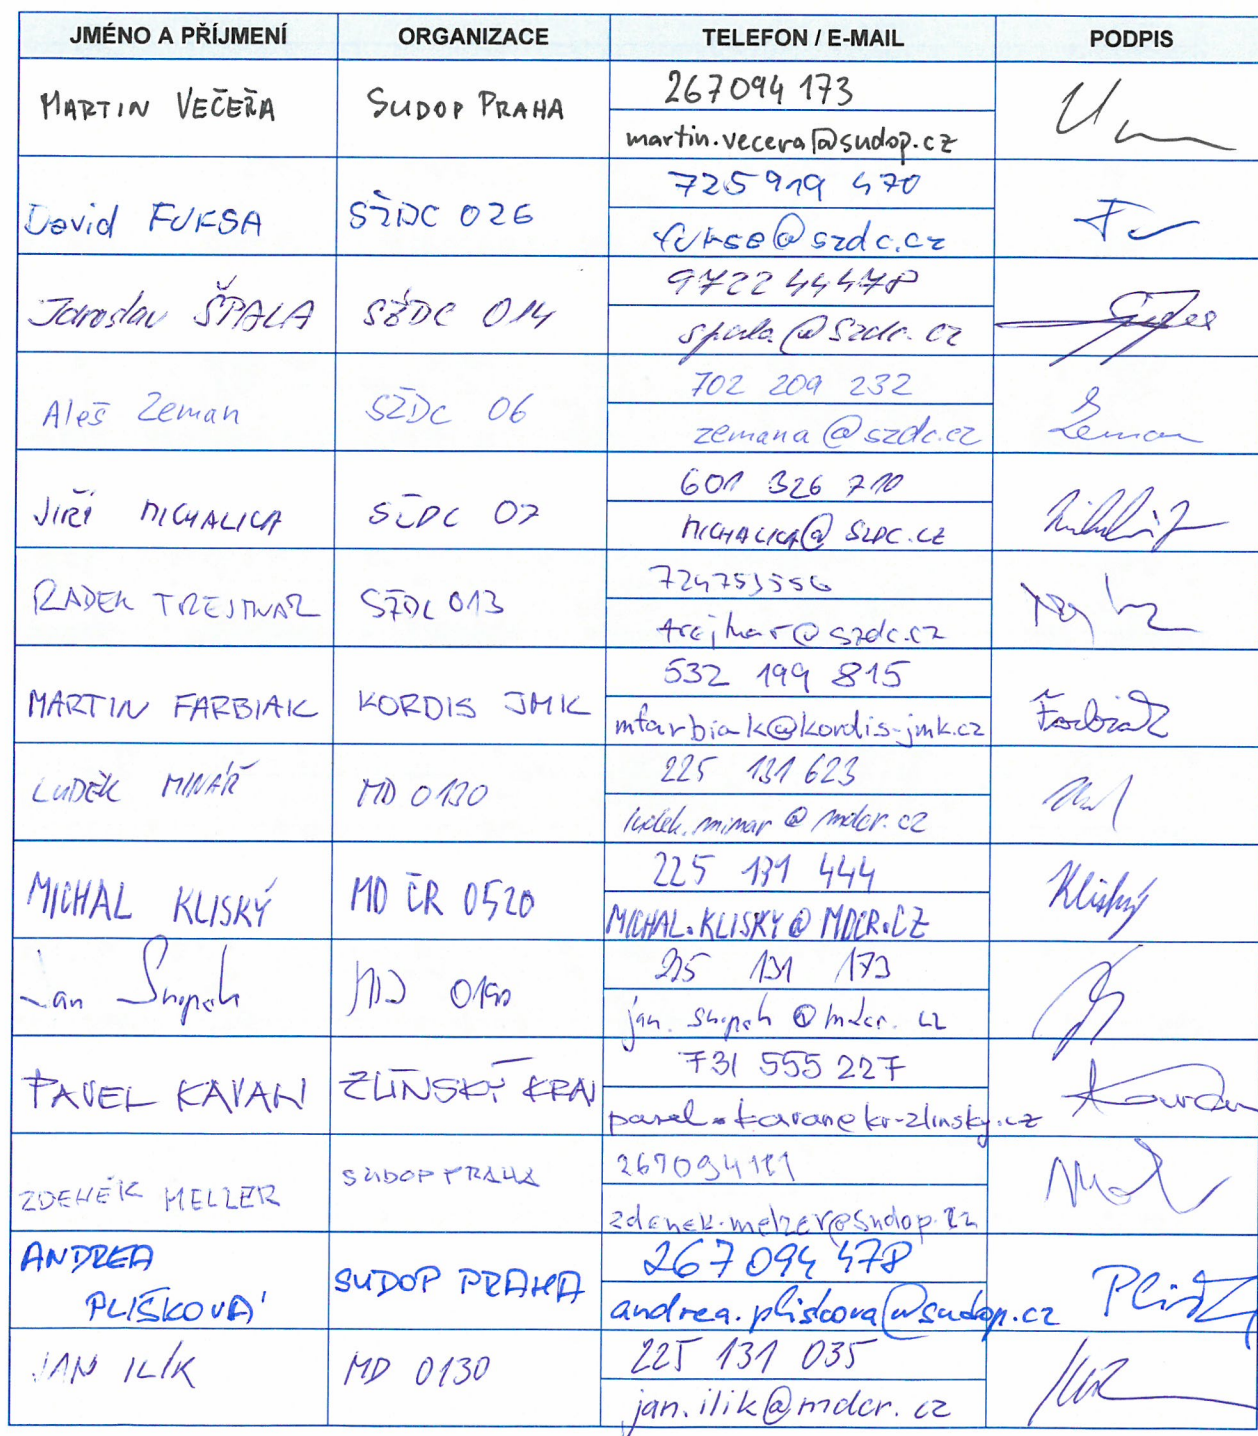 JMÉNO A PŘÍJMENÍ ORGANIZACE TELEFON / E-MAIL PODPIS
MARTIN VEČEŘA SUDOP PRAHA 267094 173
martin.vecera@sudop.cz
David FUKSA SŽDC 026 725 919 470
fuksa@szdc.cz
Jaroslav ŠPALA SŽDC 014 9722 44478
spala@szdc.cz
Aleš Zeman SŽDC 06 702 209 232
zemana@szdc.cz
Zeman
JIŘÍ MICHALICA SŽDC 07 601 326 710
MICHALICA@SZDC.CZ
RADEK TREJTNAR SŽDC 013 724753556
@szdc.cz
MARTIN FARBIAK KORDIS JMK 532 199 815
mfarbiak@kordis-jmk.cz
Farbiak
LUDĚK MINÁŘ MD 0130 225 131 623
ludek.minar@mdcr.cz
MICHAL KLISKÝ MD ČR 0520 225 131 444
MICHAL.KLISKY@MDCR.CZ
Kliský
Jan MD 131 173
jan. @mdcr.cz
PAVEL KAVAN ZLÍNSKÝ KRAJ 731 555 227
ZDENĚK MELZER SUDOP PRAHA
zdenek.melzer@sudop.cz
ANDREA
PLIŠKOVÁ SUDOP PRAHA 267 094 478
andrea.pliskova@sudop.cz
JAN ILÍK MD 0130 225 131 035
jan.ilik@mdcr.cz